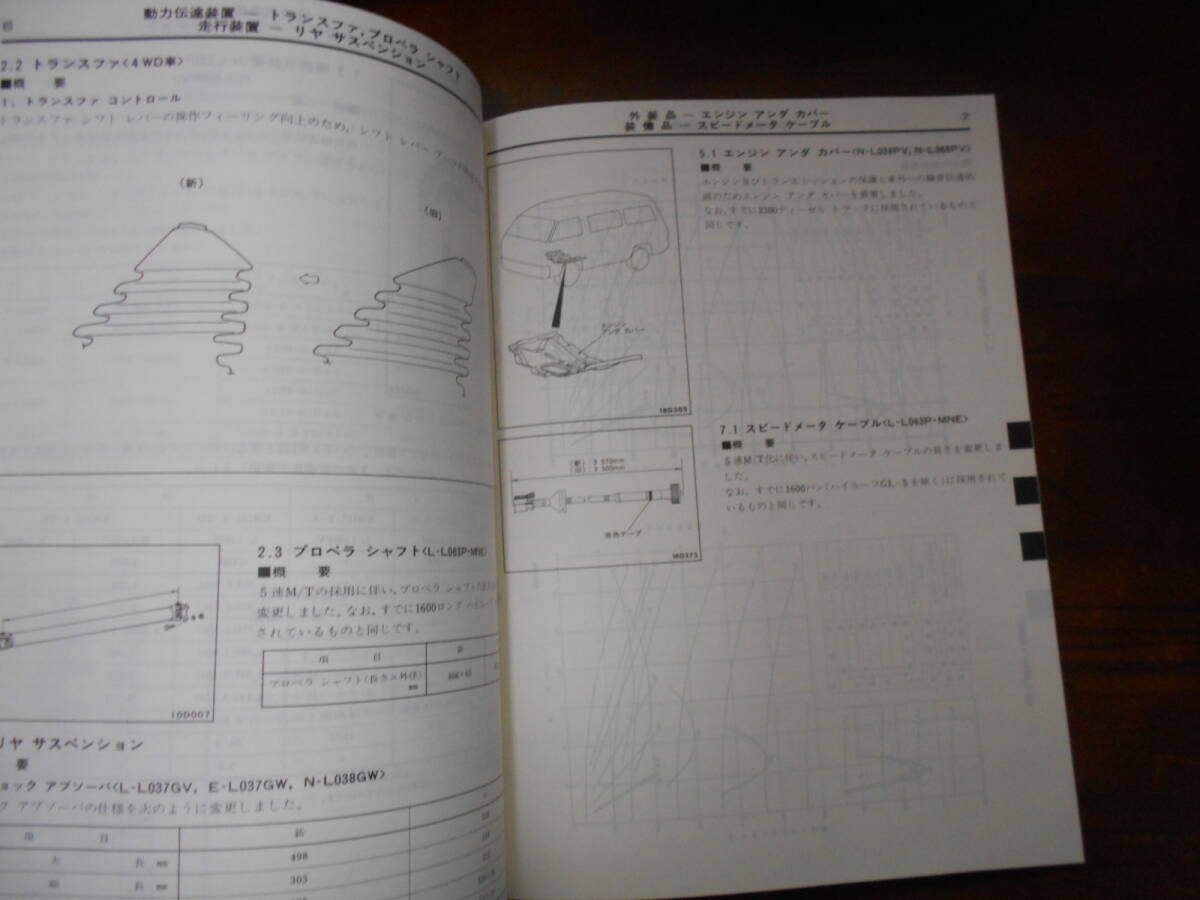 6
動力伝達装置 — トランスファ・プロペラ シャフト
走行装置 — リヤ サスペンション
2.2 トランスファ<4WD車>
■概 要
1. トランスファ コントロール
トランスファ シフト レバーの操作フィーリング向上のため、シフト レバー
(新)
(旧)
10D007
2.3 プロペラ シャフト<L-L063P・MNE>
■概 要
5速M/Tの採用に伴い、プロペラ シャフト
変更しました。なお、すでに1600ロング ハイルーフ
されているものと同じです。
項 目
プロペラ シャフト(長さ×外径)
mm
リヤ サスペンション
要
ョック アブソーバ<L-L037GV, E-L037GW, N-L038GW>
ク アブソーバの仕様を次のように変更しました。
項 目 新
大 長 mm 498
縮 長 mm 303
外装品 — エンジン アンダ カバー
装備品 — スピードメータ ケーブル
7
5.1 エンジン アンダ カバー<N-L038PV, N-L068PV>
■概 要
エンジン及びトランスミッションの保護と車外への騒音伝達低
減のためエンジン アンダ カバーを装着しました。
なお、すでに2300ディーゼル トラックに採用されているものと
同じです。
エンジン
アンダ カバー
16D365
7.1 スピードメータ ケーブル<L-L063P・MNE>
■概 要
5速M/T化に伴い、スピードメータ ケーブルの長さを変更しま
した。
なお、すでに1600バン(ハイルーフGL-5を除く)に採用されて
いるものと同じです。
(新): 2 570mm
(旧): 2 500mm
赤色テープ
16D373